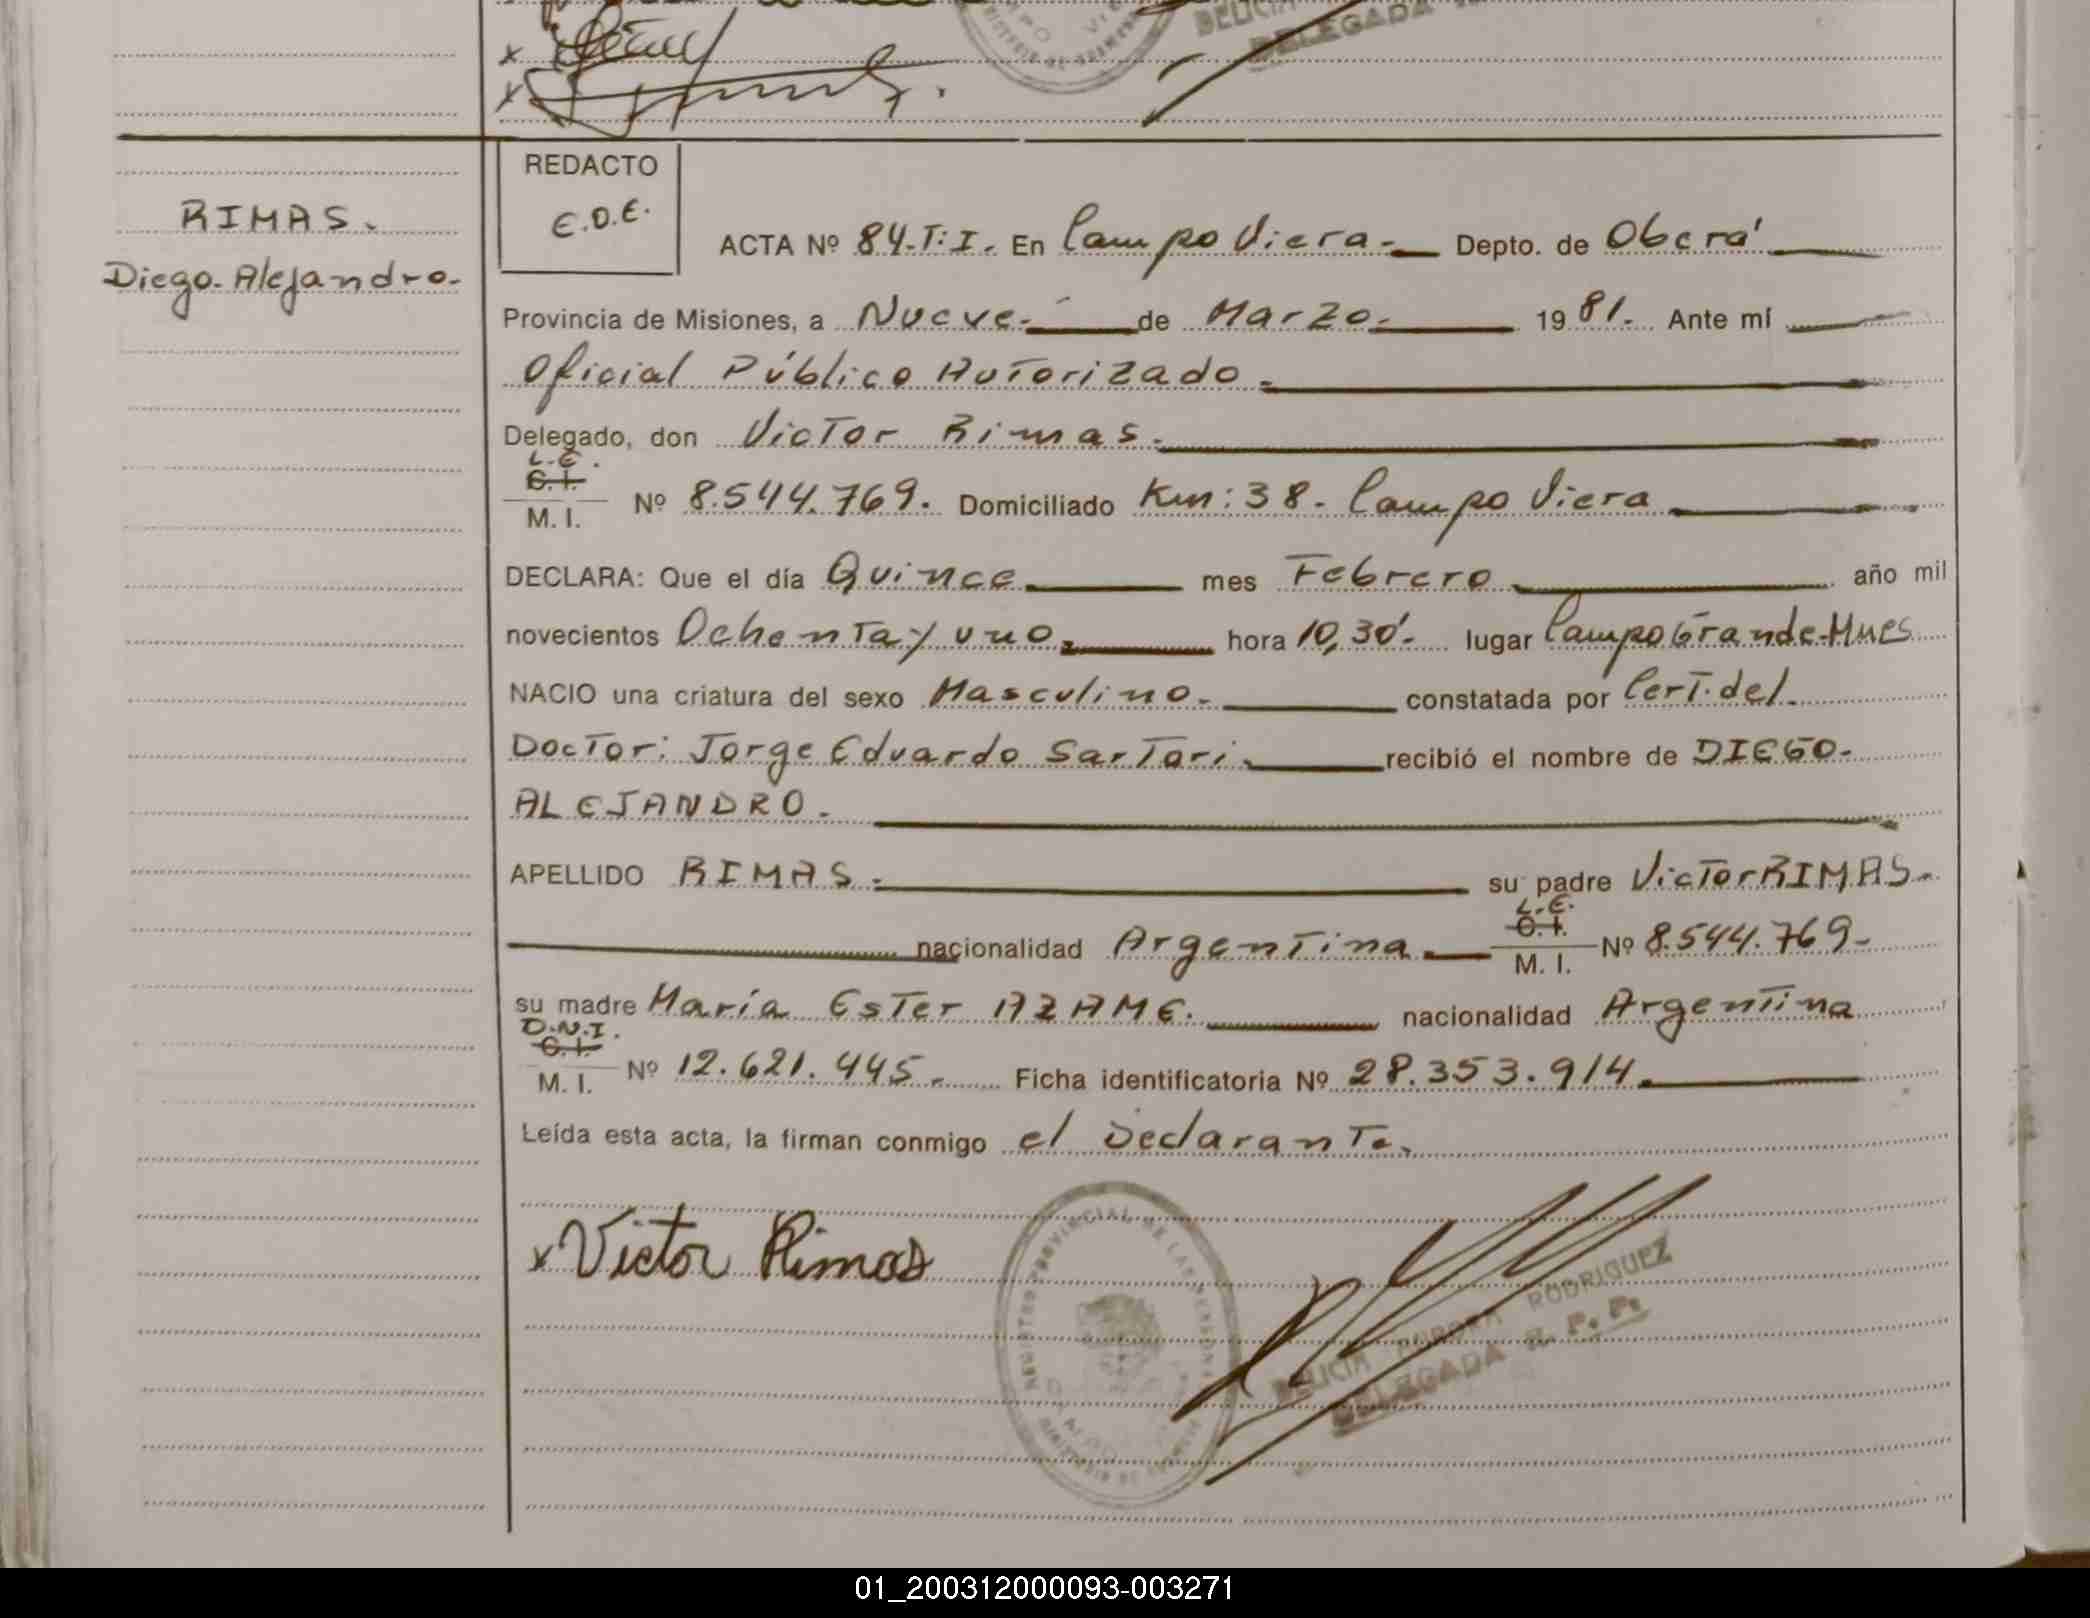 REDACTO
E.D.E.
RIMAS.
Diego. Alejandro.
ACTA Nº 84-T:I. En Campo Viera.- Depto. de Oberá
Provincia de Misiones, a Nueve. de Marzo. 1981. Ante mí
Oficial Público Autorizado.
Delegado, don Victor Rimas.
L.E.
C.I.
M. I. Nº 8.544.769. Domiciliado Km: 38- Campo Viera
DECLARA: Que el día Quince mes Febrero año mil
novecientos Ochenta y uno. hora 10,30'. lugar Campo Grande-Mnes
NACIO una criatura del sexo Masculino. constatada por Cert. del
Doctor: Jorge Eduardo Sartori. recibió el nombre de DIEGO-
ALEJANDRO.
APELLIDO RIMAS. su padre Victor RIMAS.
nacionalidad Argentina L.E. C.I. M. I. Nº 8.544.769-
su madre María Ester AZAME. nacionalidad Argentina
D.N.I.
C.I.
M. I. Nº 12.621.445. Ficha identificatoria Nº 28.353.914.
Leída esta acta, la firman conmigo el Declarante.
x Victor Rimas
REGISTRO PROVINCIAL DE LAS PERSONAS
RODRIGUEZ
DELEGADA R. P. P.
01_200312000093-003271